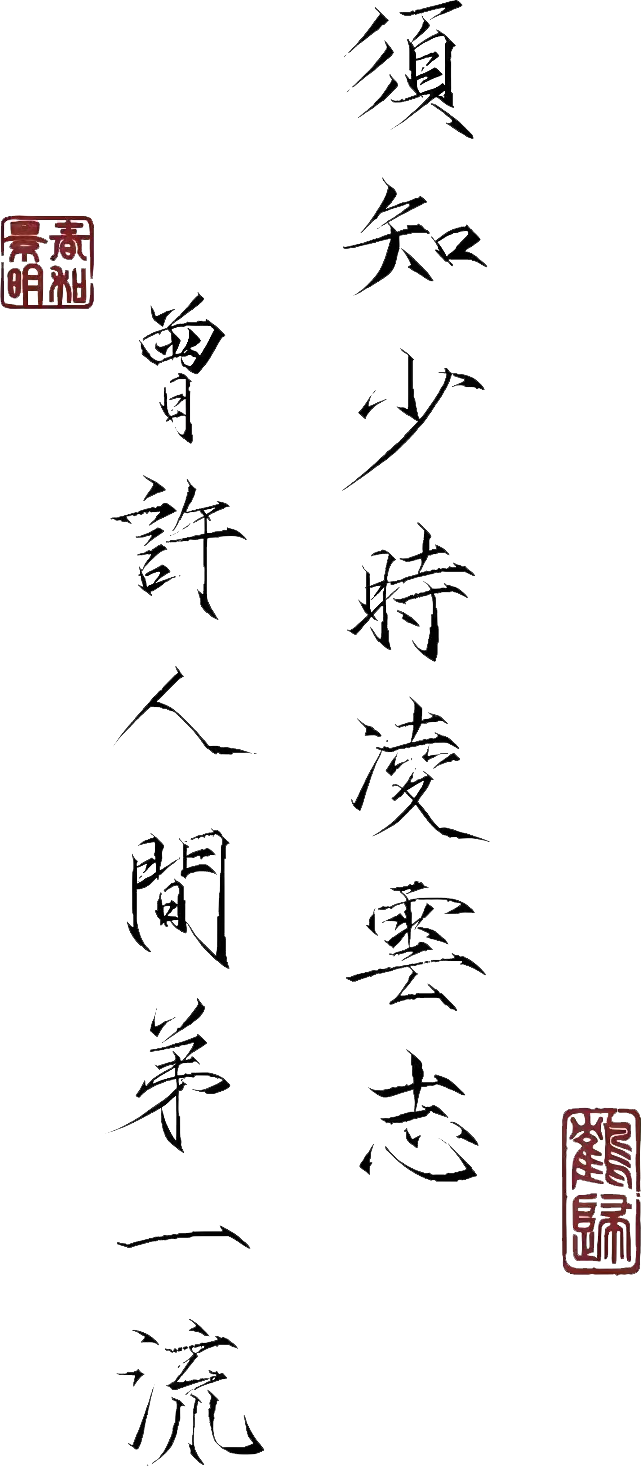 須知少時凌雲志
曾許人間弟一流
春和景明
鶴歸